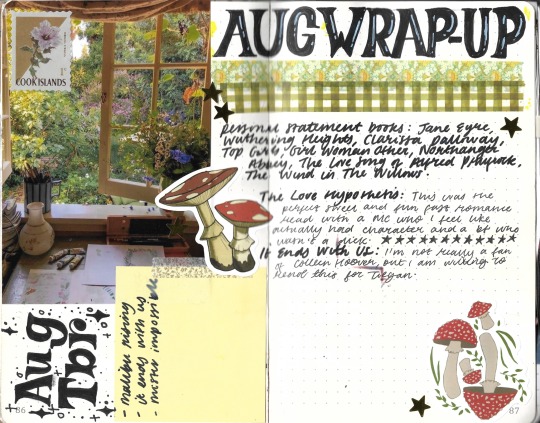 COOK ISLANDS
1c
Aug
Tbr
- malibu rising
- it ends with us
- mirros impossible
86
AUG WRAP-UP
Personal statement books: Jane Eyre,
Wuthering Heights, Clarissa Dalloway,
Top Girls, Girl Woman Other, Northanger
Abbey, The Love Song of Alfred Prufrock,
The Wind in The Willows.
The Love Hypothesis: This was the
perfect sweet and fun fast romance
read with a MC who I feel like
actually had character and a
wasn't a
It Ends With Us: I'm not really a fan
of Colleen Hoover, but I am willing to
read this for
87